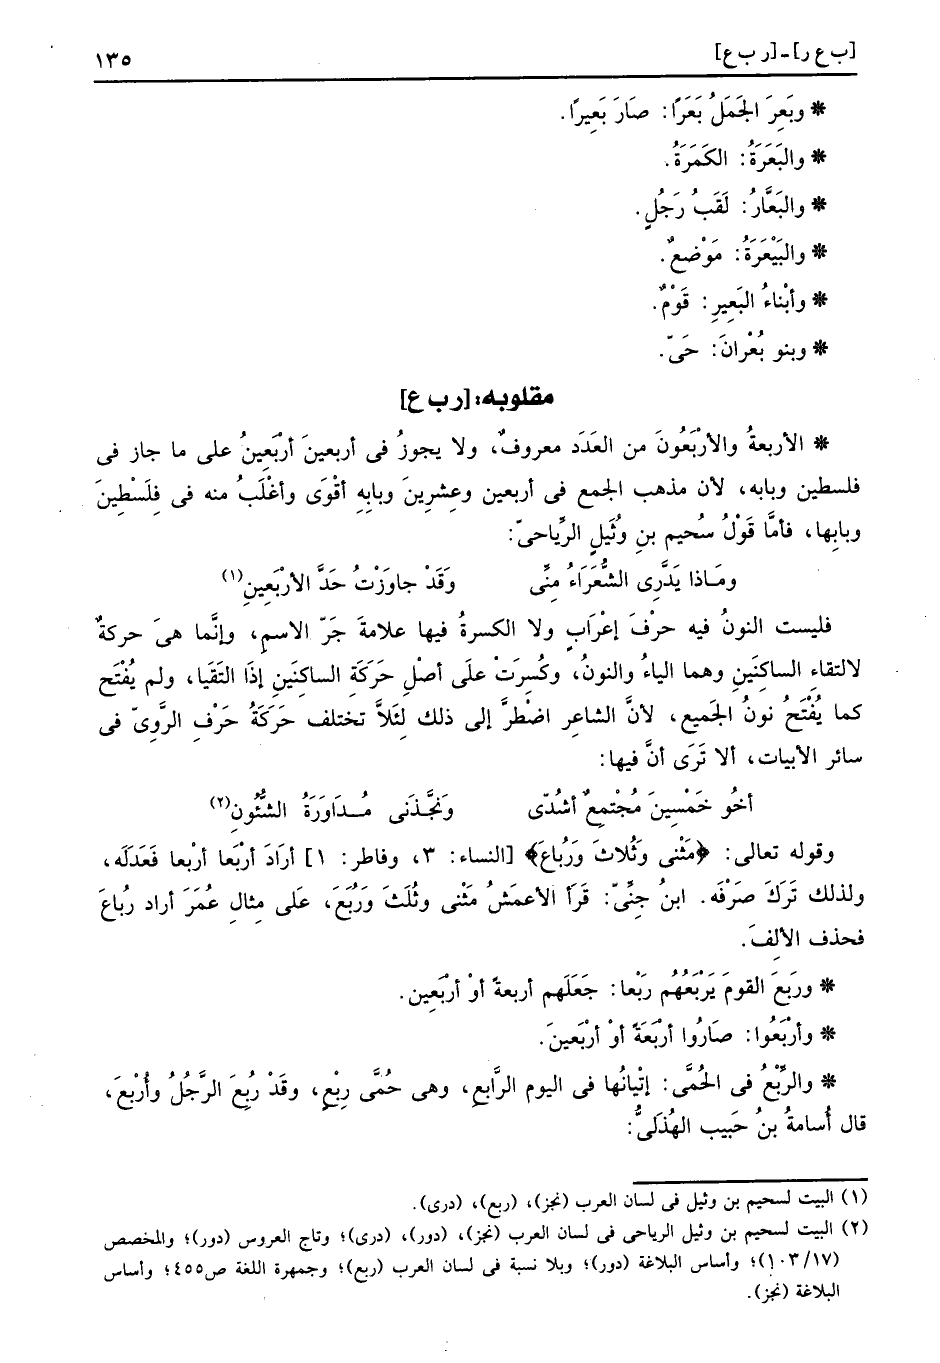 [ب ع ر] - [ر ب ع]
١٣٥
* وبَعِرَ الجَمَلُ بَعَرًا: صَارَ بَعِيرًا.
* والبَعَرَةُ: الكَمَرَةُ.
* والبَعَّارُ: لَقَبُ رَجُلٍ.
* والبَيْعَرَةُ: مَوْضعٌ.
* وأبْناءُ البَعِيرِ: قَوْمٌ.
* وبنو بُعْرانَ: حَىّ.
مقلوبه: [ر ب ع]
* الأربعةُ والأرْبَعُونَ من العَدَد معروفٌ، ولا يجوزُ فى أربعينَ أرْبَعِينُ على ما جاز فى
فلسطين وبابه، لأن مذهب الجمع فى أربعين وعشرينَ وبابِهِ أقْوَى وأغْلَبُ منه فى فِلَسْطِينَ
وبابِها، فأمَّا قَوْلُ سُحيم بنِ وُثَيلٍ الرِّياحىّ:
ومَـاذا يَدَّرِى الشُّعَرَاءُ مِنِّى وَقَدْ جاوَزْتُ حَدَّ الأرْبَعِينِ(١)
فليست النونُ فيه حرْفَ إعْرَابٍ ولا الكسرةُ فيها علامةَ جَرّ الاسمِ، وإنَّما هىَ حركةٌ
لالتقاء الساكنَينِ وهما الياءُ والنونُ، وكُسِرَتْ علَى أصْلِ حَرَكَةِ الساكنَينِ إذَا التَقَيا، ولم يُفْتَح
كما يُفْتَحُ نونُ الجَميع، لأنَّ الشاعر اضْطرَّ إلى ذلك لِئَلاَّ تختلف حَرَكَةُ حَرْف الرَّوِىّ فى
سائر الأبيات، ألا تَرَى أنَّ فيها:
أخُو خَمْسِينَ مُجْتمِعٌ أشُدّى وَنَجَّذَنى مُـدَاوَرَةُ الشُّئُونِ(٢)
وقوله تعالى: ﴿مَثْنى وَثُلاثَ وَرُباعَ﴾ [النساء: ٣، وفاطر: ١] أرَادَ أرْبَعا أرْبعا فَعَدَلَه،
ولذلك تَرَكَ صَرْفَه. ابنُ جِنِّىّ: قَرَأ الأعمَشُ مَثْنى وثُلَثَ وَرُبَعَ، عَلى مثالِ عُمَرَ أراد رُباعَ
فحذف الألِفَ.
* ورَبَعَ القومَ يَرْبَعُهُم رَبْعا: جَعَلَهم أربعةً أوْ أرْبَعِين.
* وأرْبَعُوا: صَارُوا أرْبَعَةً أوْ أرْبَعِينَ.
* والرِّبْعُ فى الحُمَّى: إتْيانُها فى اليوم الرَّابعِ، وهى حُمَّى رِبْعٍ، وقَدْ رُبِعَ الرَّجُلُ وأُرْبِعَ،
قال أُسامةُ بنُ حَبيب الهُذَلىُّ:
(١) البيت لسحيم بن وثيل فى لسان العرب (نجز)، (ربع)، (درى).
(٢) البيت لسحيم بن وثيل الرياحى فى لسان العرب (نجز)، (دور)، (درى)؛ وتاج العروس (دور)؛ والمخصص
(١٠٣/١٧)؛ وأساس البلاغة (دور)؛ وبلا نسبة فى لسان العرب (ربع)؛ وجمهرة اللغة ص٤٥٥؛ وأساس
البلاغة (نجز).